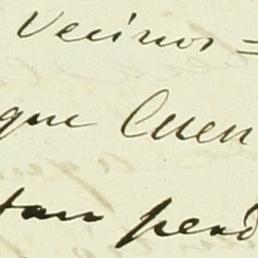 Vecinos =
que Cuen
tan pend